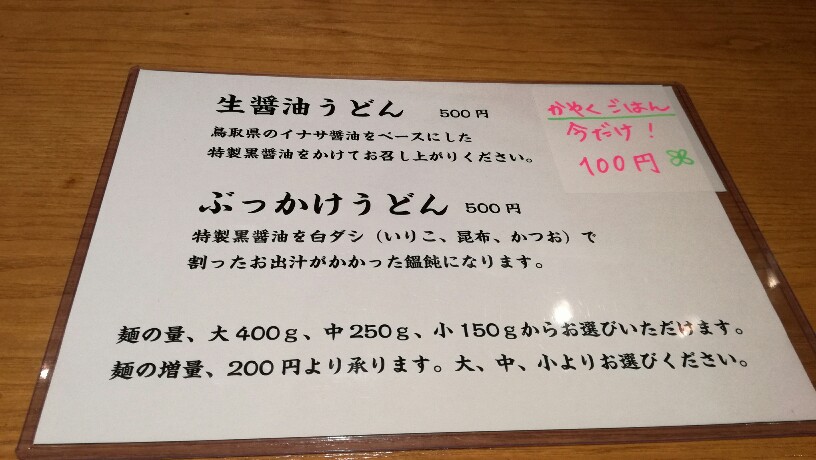 生醤油うどん 500円
鳥取県のイナサ醤油をベースにした
特製黒醤油をかけてお召し上がりください。
かやくごはん
今だけ!
100円
ぶっかけうどん 500円
特製黒醤油を白ダシ(いりこ、昆布、かつお)で
割ったお出汁がかかった饂飩になります。
麺の量、大400g、中250g、小150gからお選びいただけます。
麺の増量、200円より承ります。大、中、小よりお選びください。